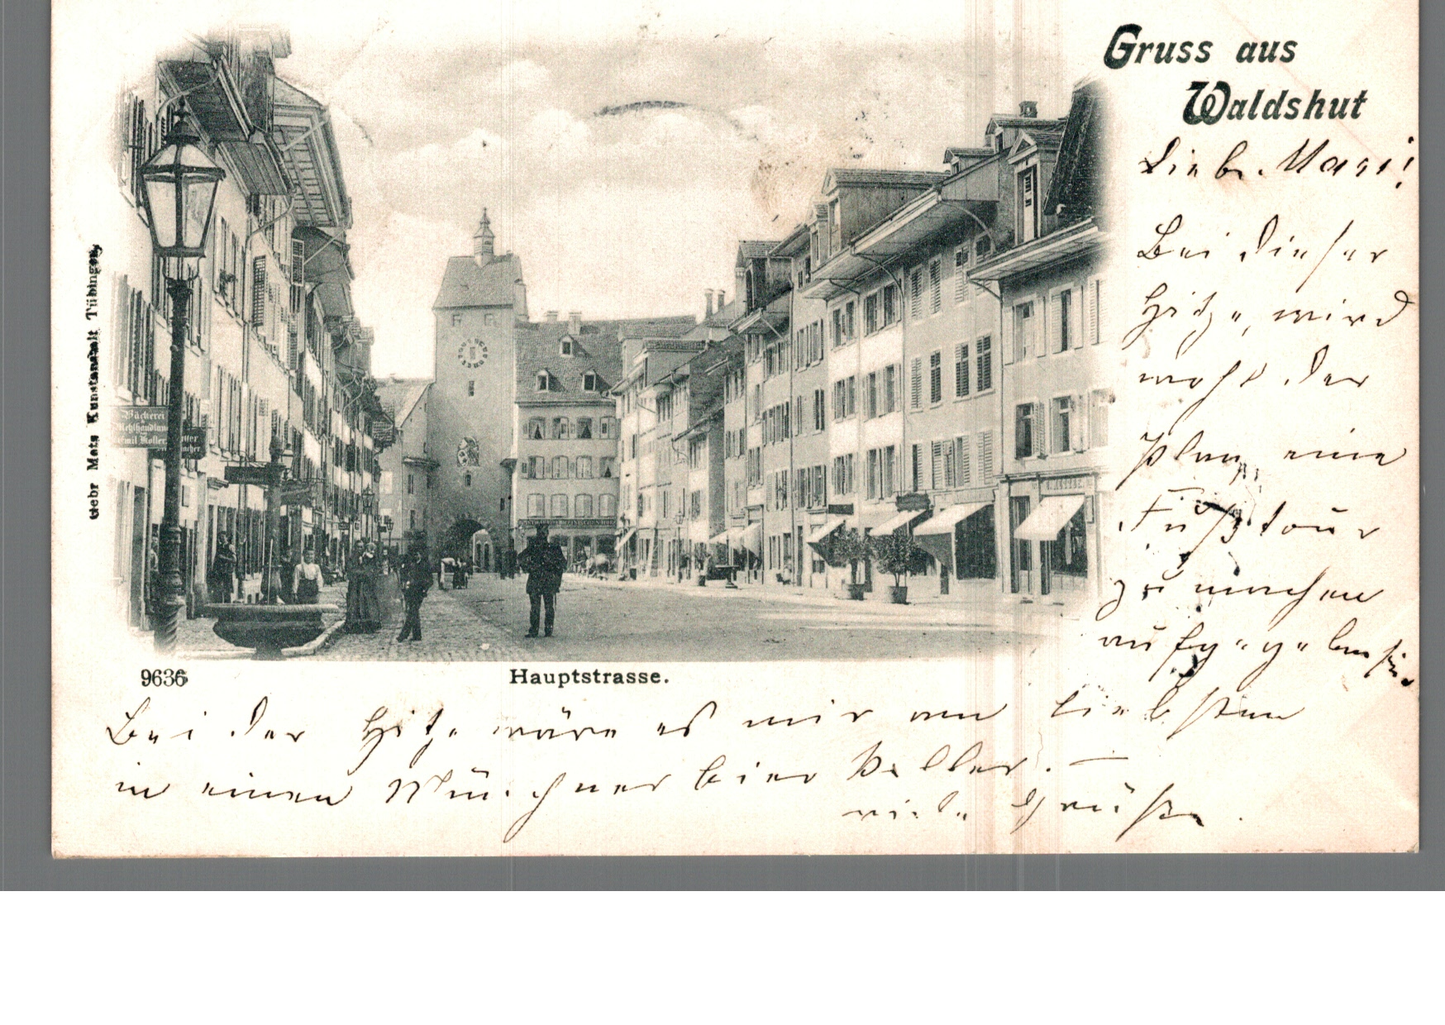 Gruss aus
Waldshut
Liebe Mari!
Bei dieser
Hitze, wird
wohl der
Plan, eine
Fußtour
zu machen
aufgegeben sein
Gebr Metz Kunstanstalt Tübingen
Bäckerei
Mehlhandlung
Emil Koller
9636
Hauptstrasse.
Bei der Hitze wäre es mir am liebsten
in einen Münchner bier Keller. —
viele Grüße